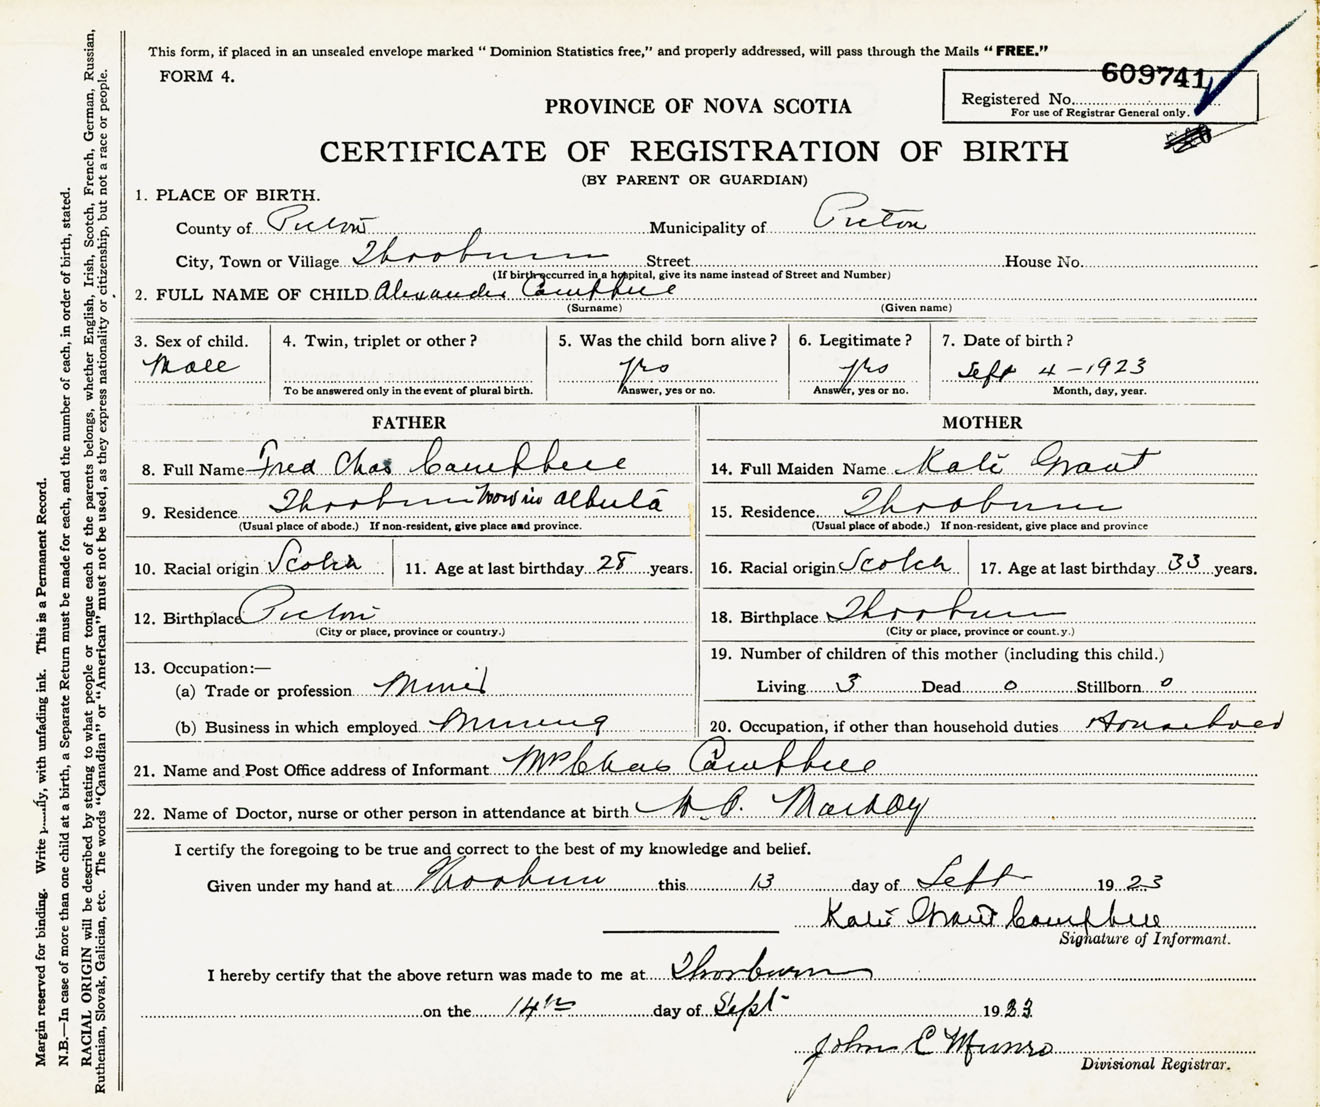 This form, if placed in an unsealed envelope marked "Dominion Statistics free," and properly addressed, will pass through the Mails "FREE."
FORM 4.
609741
Registered No.
For use of Registrar General only.
PROVINCE OF NOVA SCOTIA
CERTIFICATE OF REGISTRATION OF BIRTH
(BY PARENT OR GUARDIAN)
1. PLACE OF BIRTH.
County of Pictou Municipality of Pictou
City, Town or Village Thorburn Street House No.
(If birth occurred in a hospital, give its name instead of Street and Number)
2. FULL NAME OF CHILD Alexander Campbell
(Surname) (Given name)
3. Sex of child. 4. Twin, triplet or other? 5. Was the child born alive? 6. Legitimate? 7. Date of birth?
Male yes yes Sept 4-1923
To be answered only in the event of plural birth. Answer, yes or no. Answer, yes or no. Month, day, year.
FATHER MOTHER
8. Full Name Fred Chas Campbell 14. Full Maiden Name Kate Grant
9. Residence Thorburn Now in Alberta 15. Residence Thorburn
(Usual place of abode.) If non-resident, give place and province. (Usual place of abode.) If non-resident, give place and province
10. Racial origin Scotch 11. Age at last birthday 28 years. 16. Racial origin Scotch 17. Age at last birthday 33 years.
12. Birthplace Pictou 18. Birthplace Thorburn
(City or place, province or country.) (City or place, province or count.y.)
13. Occupation:— 19. Number of children of this mother (including this child.)
(a) Trade or profession Miner Living 3 Dead 0 Stillborn 0
(b) Business in which employed Mining 20. Occupation, if other than household duties
21. Name and Post Office address of Informant Mrs Chas Campbell
22. Name of Doctor, nurse or other person in attendance at birth
I certify the foregoing to be true and correct to the best of my knowledge and belief.
Given under my hand at Thorburn this 13 day of Sept 1923
Kate Grant Campbell
Signature of Informant.
I hereby certify that the above return was made to me at Thorburn
on the 14th day of Sept 1923
John C Munro
Divisional Registrar.
Margin reserved for binding. Write with unfading ink. This is a Permanent Record.
N.B.—In case of more than one child at a birth, a Separate Return must be made for each, and the number of each, in order of birth, stated.
RACIAL ORIGIN will be described by stating to what people or tongue each of the parents belongs, whether English, Irish, Scotch, French, German, Russian,
Ruthenian, Slovak, Galician, etc. The words "Canadian" or "American" must not be used, as they express nationality or citizenship, but not a race or people.